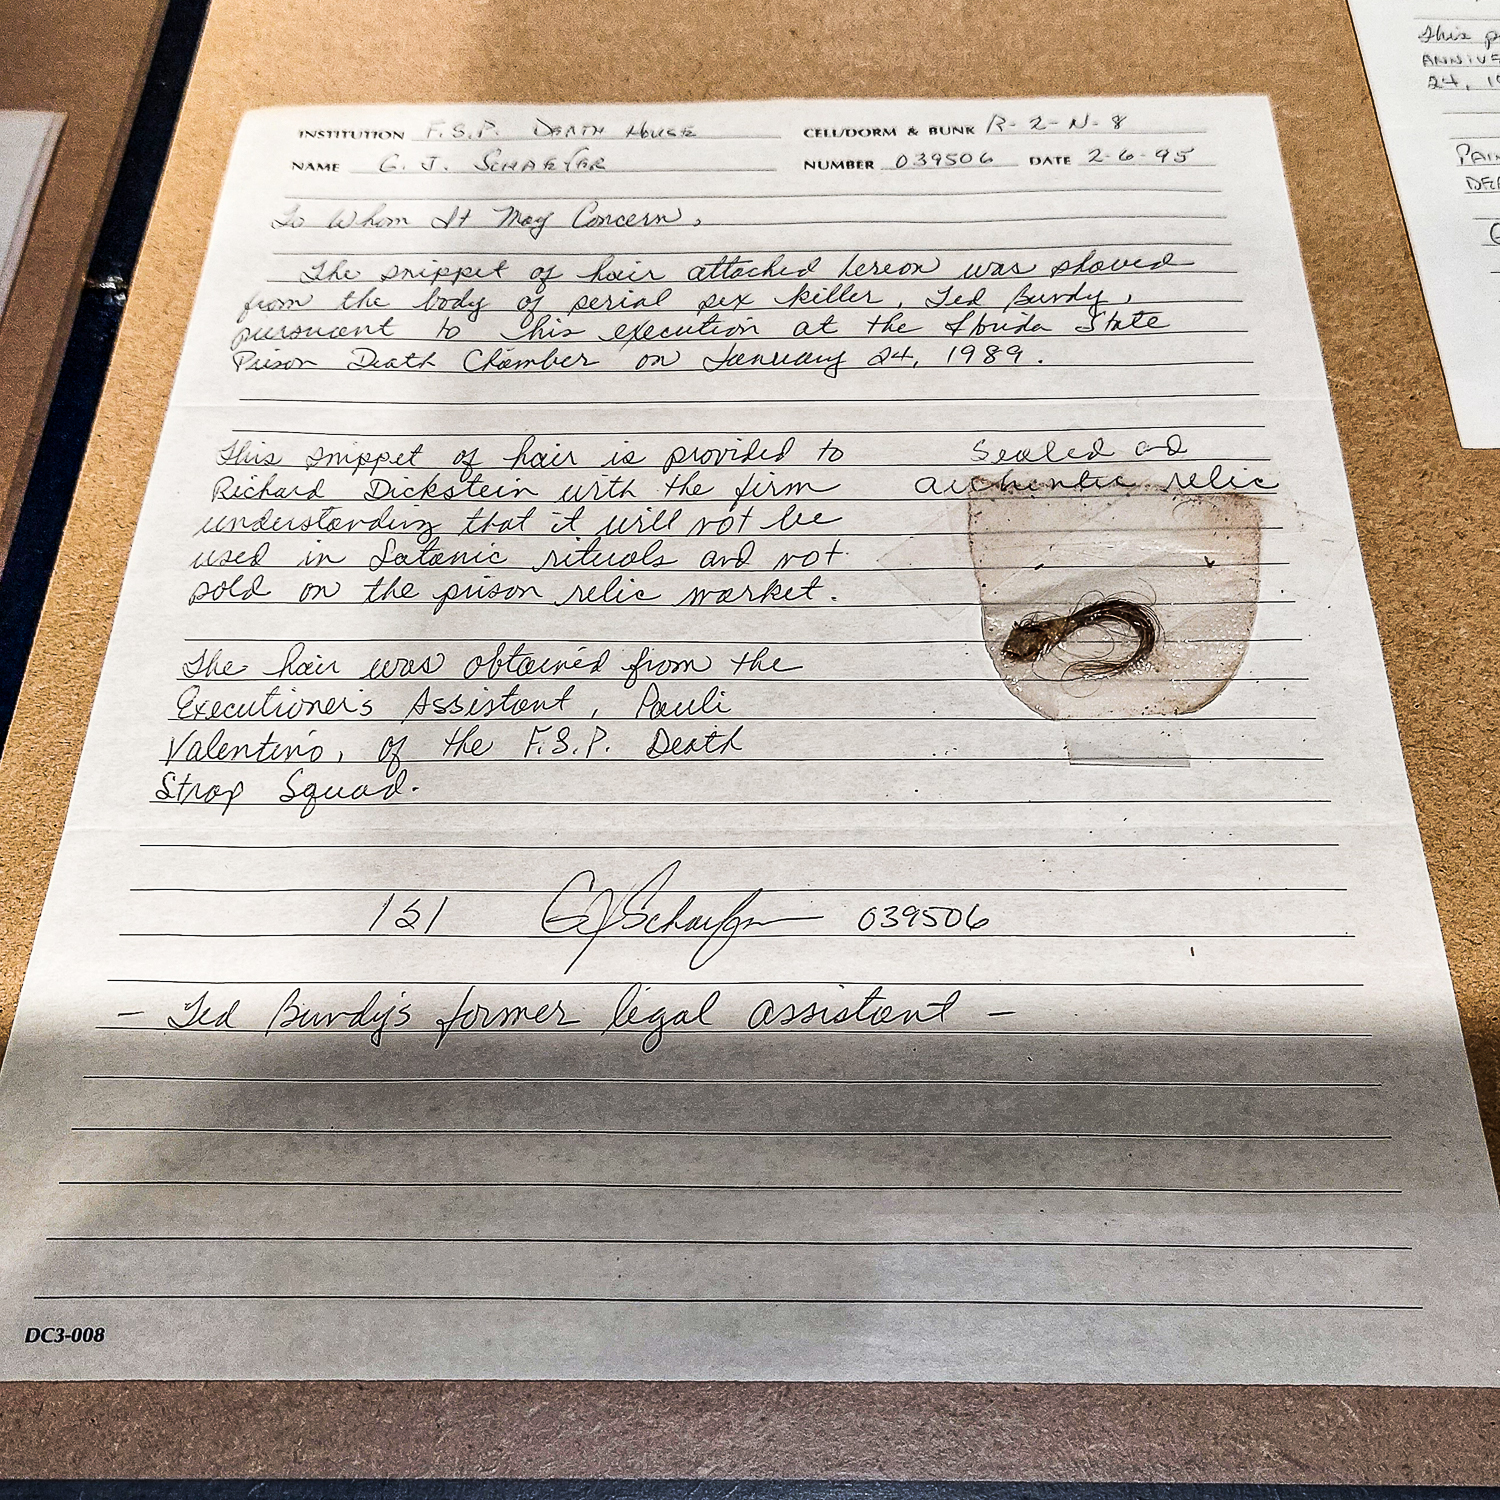 INSTITUTION F.S.P. DEATH HOUSE CELL/DORM & BUNK R-2-N-8
NAME G. J. SCHAEFER NUMBER 039506 DATE 2-6-95
To Whom It May Concern,
The snippet of hair attached hereon was shaved
from the body of serial sex killer, Ted Bundy,
pursuant to his execution at the Florida State
Prison Death Chamber on January 24, 1989.
This snippet of hair is provided to
Richard Dickstein with the firm
understanding that it will not be
used in Satanic rituals and not
sold on the prison relic market.
Sealed ad
authentic relic
The hair was obtained from the
Executioner's Assistant, Pauli
Valentino, of the F.S.P. Death
Strap Squad.
/s/ GJSchaefer 039506
- Ted Bundy's former legal assistant -
DC3-008
This
ANNIVE
24, 19